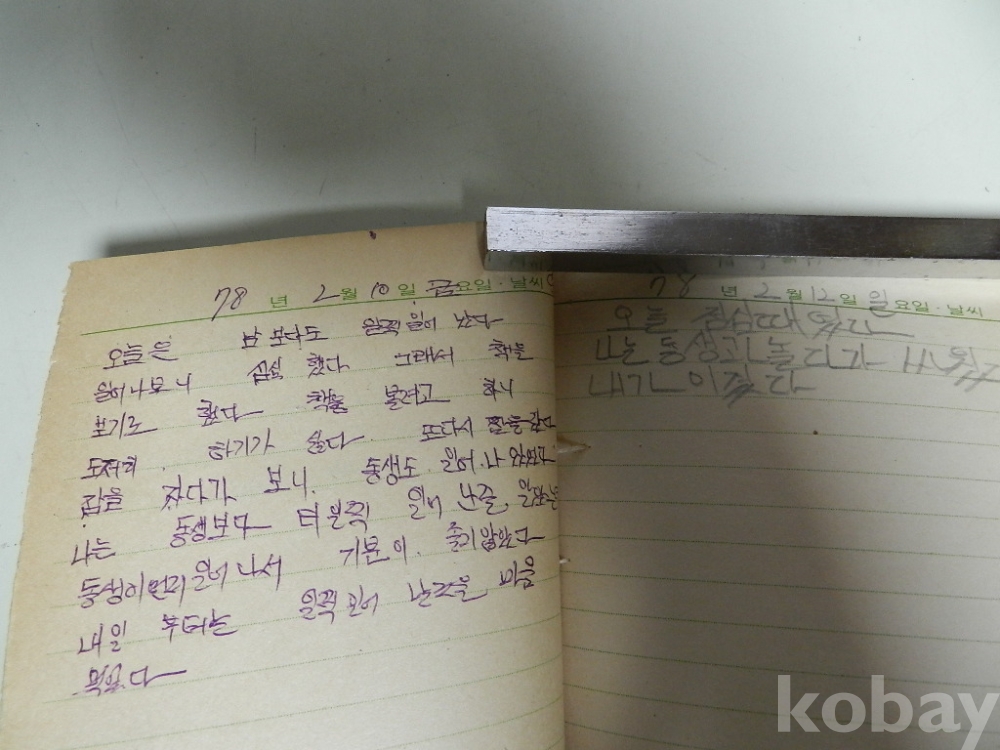 78 년 2 월 10 일 금 요일 · 날씨
오늘은 남 보다도 일찍 일어 났다
일어나보니 심심 했다 그래서 책을
보기로 했다 책을 볼려고 하니
도저히 하기가 싫다 또다시 잠을 잤다
잠을 자다가 보니 동생도 일어 나 있었다
나는 동생보다 더 일찍 일어 난줄
동생이 먼저 일어 나서 기분이 좋지않았다
내일 부터는 일찍 일어 마음
먹었다
78 년 2 월 12 일 일 요일 · 날씨
오늘 점심때 였다
나는 동생과 놀다가
내가 이겼다
kobay